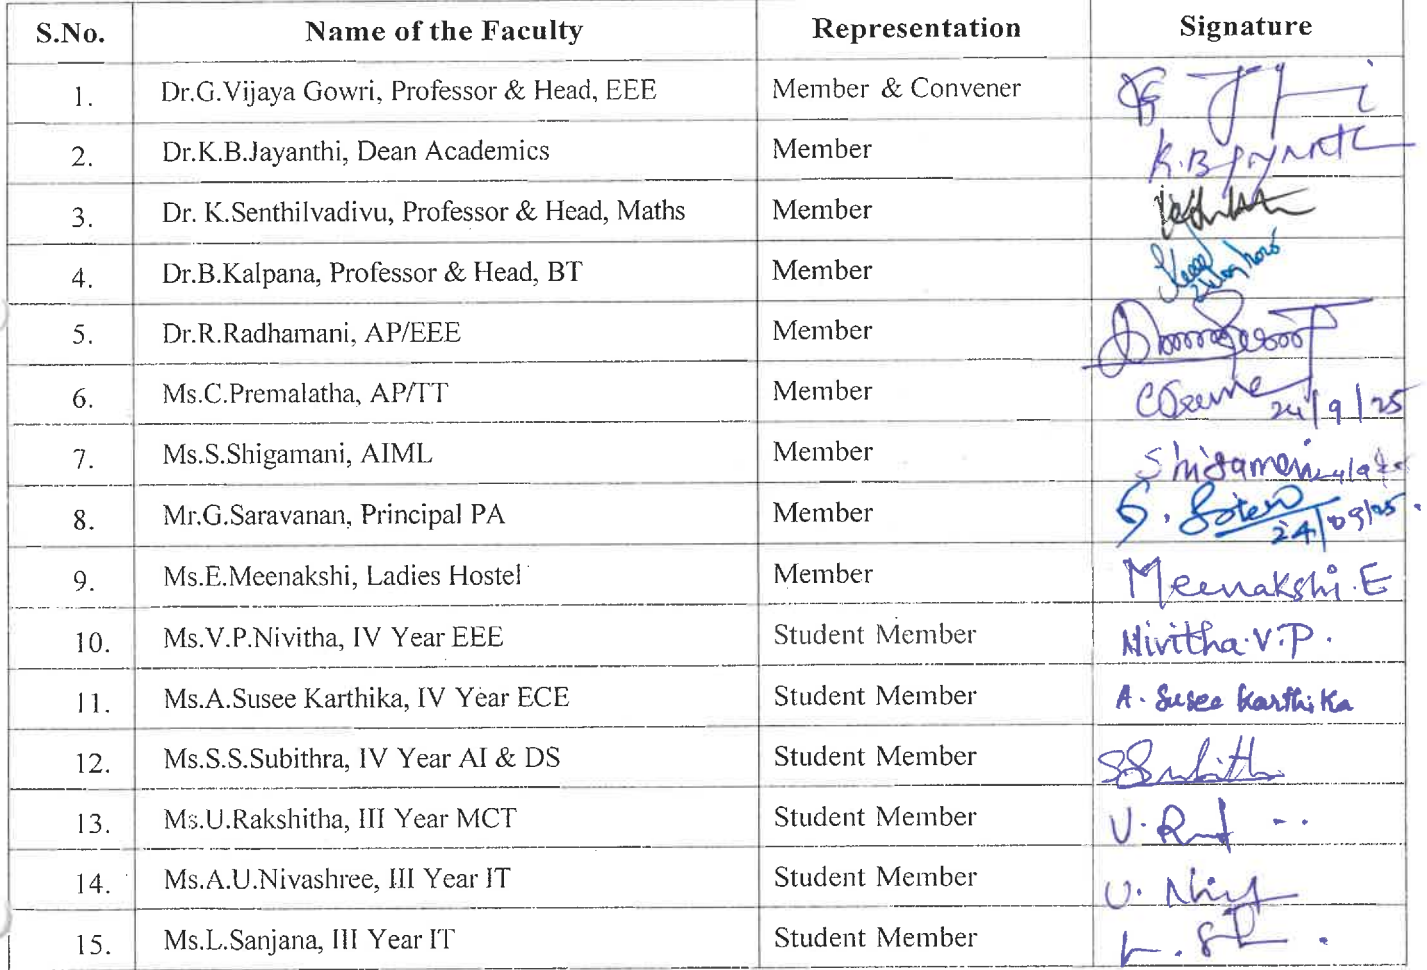 S.No. Name of the Faculty Representation Signature
1. Dr.G.Vijaya Gowri, Professor & Head, EEE Member & Convener
2. Dr.K.B.Jayanthi, Dean Academics Member K.B Jayanthi
3. Dr. K.Senthilvadivu, Professor & Head, Maths Member
4. Dr.B.Kalpana, Professor & Head, BT Member
5. Dr.R.Radhamani, AP/EEE Member
6. Ms.C.Premalatha, AP/TT Member 24/9/25
7. Ms.S.Shigamani, AIML Member Shigamani
8. Mr.G.Saravanan, Principal PA Member 24/09/25.
9. Ms.E.Meenakshi, Ladies Hostel Member Meenakshi.E
10. Ms.V.P.Nivitha, IV Year EEE Student Member Nivitha.V.P.
11. Ms.A.Susee Karthika, IV Year ECE Student Member A. Susee Karthika
12. Ms.S.S.Subithra, IV Year AI & DS Student Member
13. Ms.U.Rakshitha, III Year MCT Student Member
14. Ms.A.U.Nivashree, III Year IT Student Member
15. Ms.L.Sanjana, III Year IT Student Member